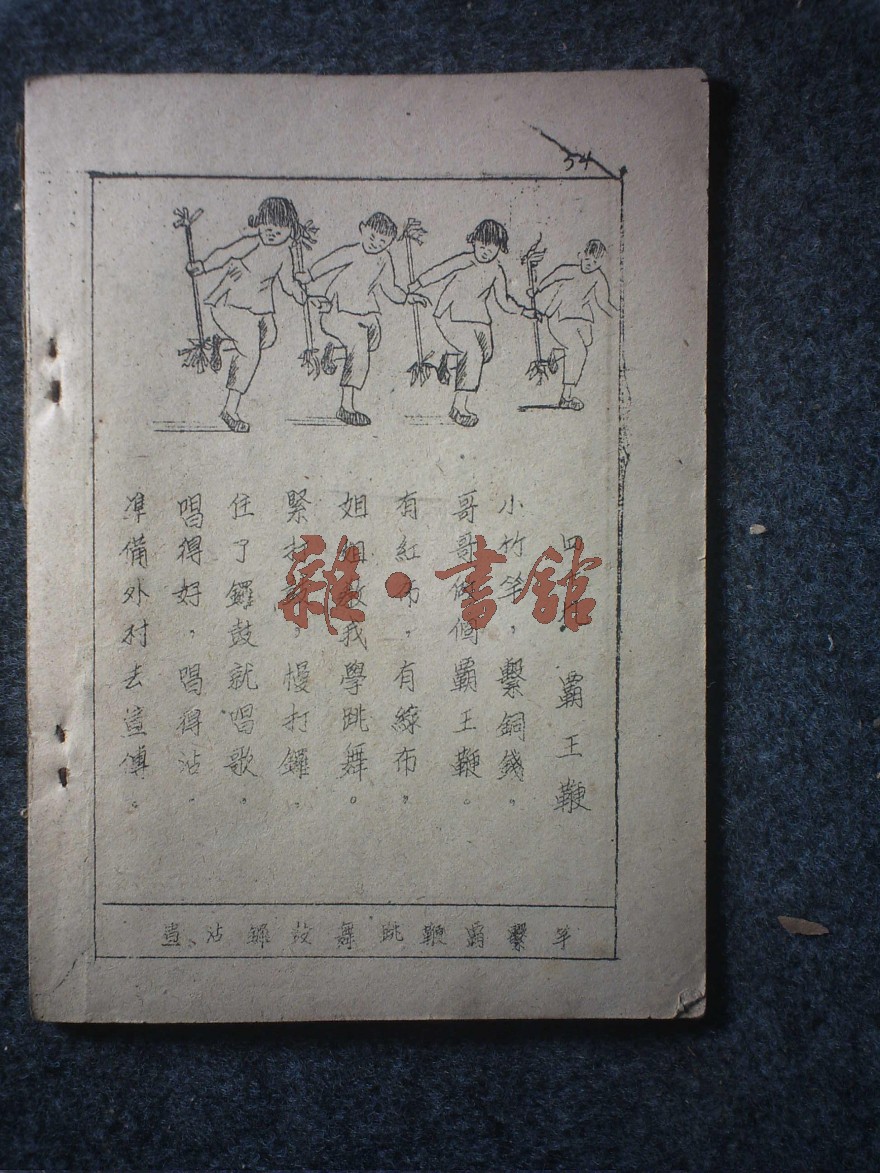 54
覇王鞭
小竹竿，繫銅錢，
哥哥做個覇王鞭。
有紅布，有綠布，
姐姐教我學跳舞。
緊打，慢打鑼，
住了鑼鼓就唱歌。
唱得好，唱得沾，
準備外村去宣傳。
竿繫覇鞭跳舞鼓鑼沾宣
雜·書舘